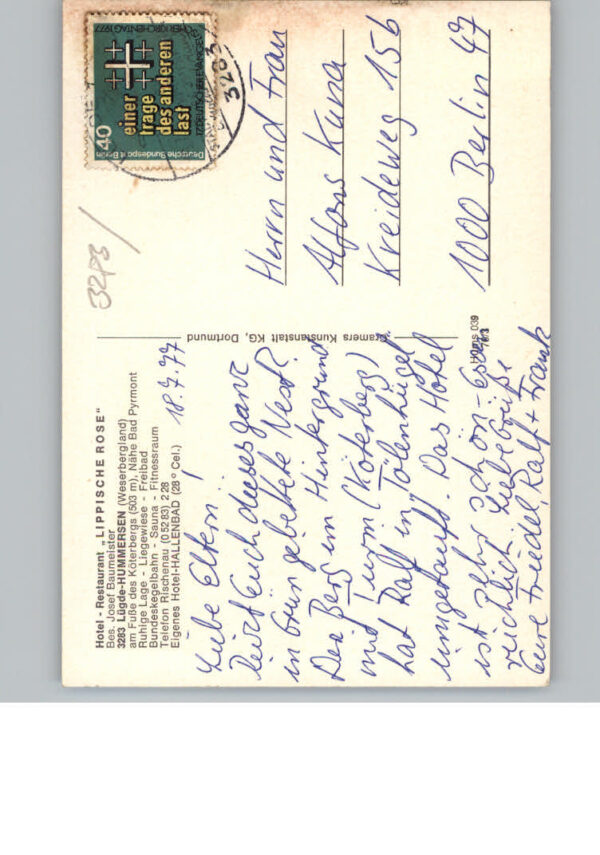 Hotel - Restaurant „LIPPISCHE ROSE"
Bes. Josef Baumeister
3283 Lügde-HUMMERSEN (Weserbergland)
am Fuße des Köterbergs (503 m), Nähe Bad Pyrmont
Ruhige Lage - Liegewiese - Freibad
Bundeskegelbahn - Sauna - Fitnessraum
Telefon Rischenau (0 52 83) 2 28
Eigenes Hotel-HALLENBAD (28° Cel.)
18.7.77
Liebe Eltern!
Euch dieses ganz
in Grün gebettete Nest?
Der Berg im Hintergrund
mit Turm (Köterberg)
hat Ralf in Tölenhügel
umgetauft. Das Hotel
ist sehr schön - Essen
reichlich Liebe Grüße
Eure Friedel, Ralf + Frank
Cramers Kunstanstalt KG, Dortmund
Hö 039
3283
einer
trage
des anderen
last
40
Deutsche Bundespost Berlin
KIRCHENTAG 1977
3283
Herrn und Frau
Alfons Kuna
Kreideweg 15b
1000 Berlin 47